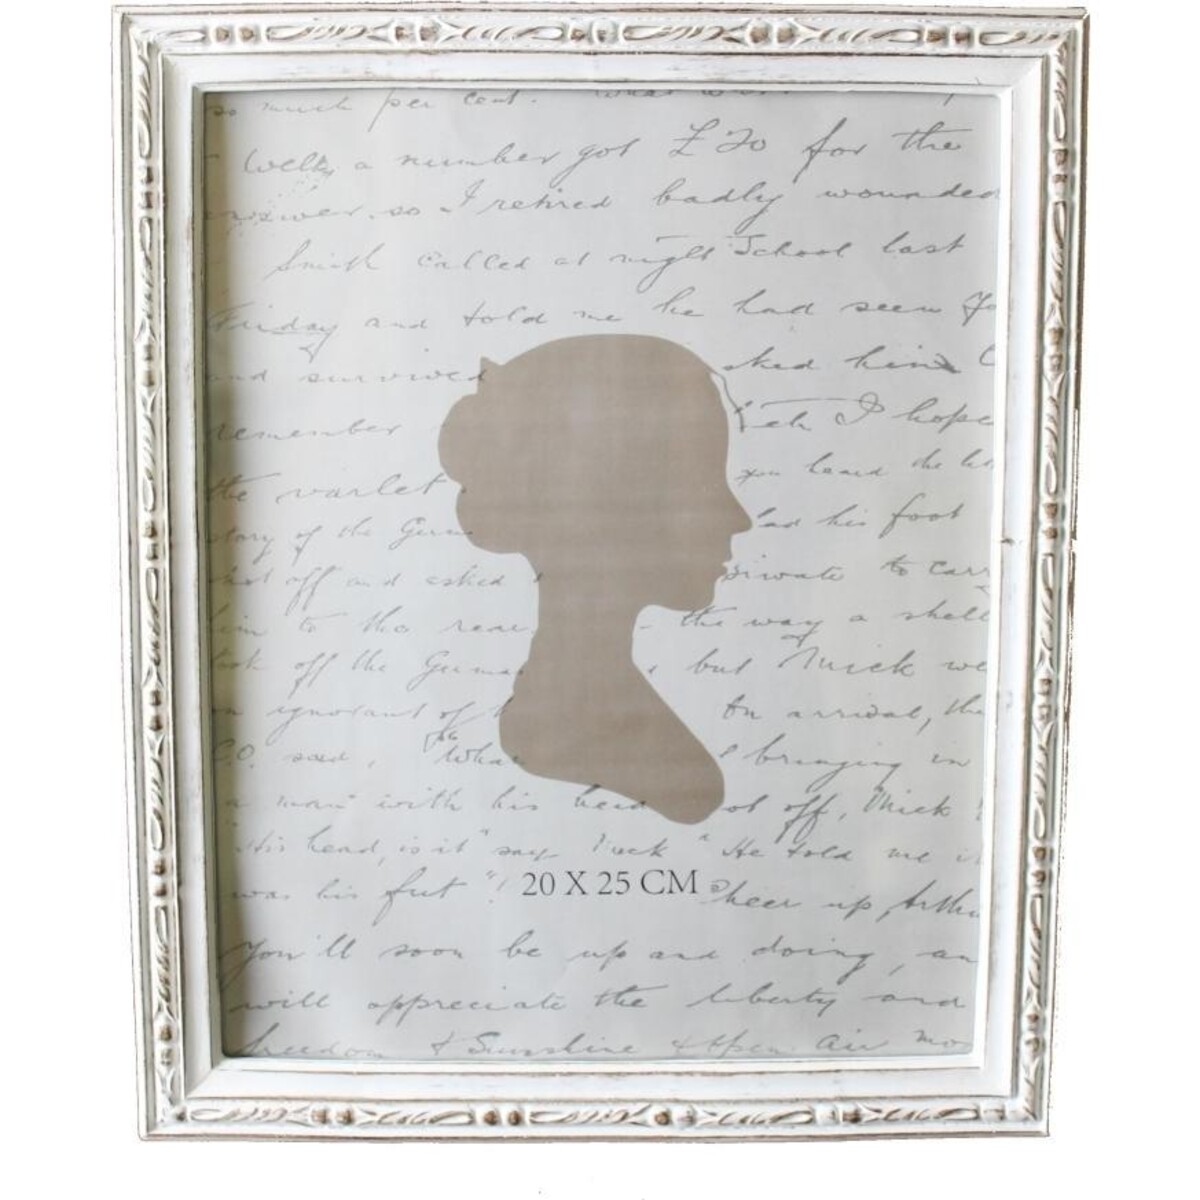 so much per cent.
Well, a number got £20 for the
answer, so I retired badly wounded
Smith called at night School last
Friday and told me he had seen
and survived asked him
remember I hope
the varlet you heard the
story of the had his foot
shot off and asked private to carry
him to the rear - the way a shell
took off the but Mick
ignorant of On arrival, the
C.O. said, "What bringing in
a man with his head off, Mick
"His head, is it" says Mick "He told me it
was his feet". 20 X 25 CM Cheer up, Arthur
You'll soon be up and doing, an
will appreciate the liberty and
freedom & Sunshine & Open Air